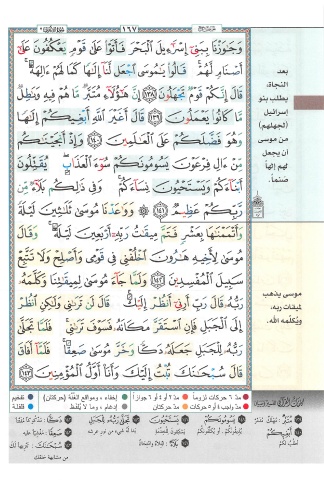 ١٦٧
وَجَٰوَزْنَا بِبَنِىٓ إِسْرَٰٓءِيلَ ٱلْبَحْرَ فَأَتَوْا۟ عَلَىٰ قَوْمٍ يَعْكُفُونَ عَلَىٰٓ
أَصْنَامٍ لَّهُمْ ۚ قَالُوا۟ يَٰمُوسَى ٱجْعَل لَّنَآ إِلَٰهًا كَمَا لَهُمْ ءَالِهَةٌ ۚ
قَالَ إِنَّكُمْ قَوْمٌ تَجْهَلُونَ ١٣٨ إِنَّ هَٰٓؤُلَآءِ مُتَبَّرٌ مَّا هُمْ فِيهِ وَبَٰطِلٌ
مَّا كَانُوا۟ يَعْمَلُونَ ١٣٩ قَالَ أَغَيْرَ ٱللَّهِ أَبْغِيكُمْ إِلَٰهًا
وَهُوَ فَضَّلَكُمْ عَلَى ٱلْعَٰلَمِينَ ١٤٠ وَإِذْ أَنجَيْنَٰكُم
مِّنْ ءَالِ فِرْعَوْنَ يَسُومُونَكُمْ سُوٓءَ ٱلْعَذَابِ ۖ يُقَتِّلُونَ
أَبْنَآءَكُمْ وَيَسْتَحْيُونَ نِسَآءَكُمْ ۚ وَفِى ذَٰلِكُم بَلَآءٌ مِّن
رَّبِّكُمْ عَظِيمٌ ١٤١ ۞ وَوَٰعَدْنَا مُوسَىٰ ثَلَٰثِينَ لَيْلَةً
وَأَتْمَمْنَٰهَا بِعَشْرٍ فَتَمَّ مِيقَٰتُ رَبِّهِۦٓ أَرْبَعِينَ لَيْلَةً ۚ وَقَالَ
مُوسَىٰ لِأَخِيهِ هَٰرُونَ ٱخْلُفْنِى فِى قَوْمِى وَأَصْلِحْ وَلَا تَتَّبِعْ
سَبِيلَ ٱلْمُفْسِدِينَ ١٤٢ وَلَمَّا جَآءَ مُوسَىٰ لِمِيقَٰتِنَا وَكَلَّمَهُۥ
رَبُّهُۥ قَالَ رَبِّ أَرِنِىٓ أَنظُرْ إِلَيْكَ ۚ قَالَ لَن تَرَىٰنِى وَلَٰكِنِ ٱنظُرْ
إِلَى ٱلْجَبَلِ فَإِنِ ٱسْتَقَرَّ مَكَانَهُۥ فَسَوْفَ تَرَىٰنِى ۚ فَلَمَّا تَجَلَّىٰ
رَبُّهُۥ لِلْجَبَلِ جَعَلَهُۥ دَكًّا وَخَرَّ مُوسَىٰ صَعِقًا ۚ فَلَمَّآ أَفَاقَ
قَالَ سُبْحَٰنَكَ تُبْتُ إِلَيْكَ وَأَنَا۠ أَوَّلُ ٱلْمُؤْمِنِينَ ١٤٣
بعد
النجاة،
يطلب بنو
إسرائيل
(لجهلهم)
من موسى
أن يجعل
لهم إلهاً
صنماً.
موسى يذهب
لميقات ربه،
ويُكلمه الله.
مدّ ٦ حركات لزوماً
مدّ ٢ أو ٤ أو ٦ جوازاً
إخفاء، ومواقع الغُنَّة (حركتان)
تفخيم
مدّ واجب ٤ أو ٥ حركات
مدّ حركتان
إدغام، وما لا يُلفظ
قلقلة